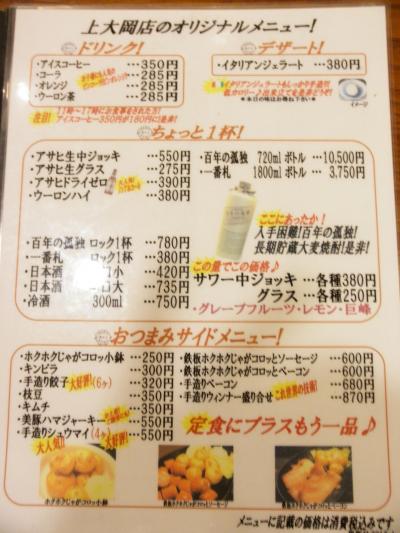 上大岡店のオリジナルメニュー!
ドリンク!
・アイスコーヒー …350円
・コーラ …285円
・オレンジ …285円
・ウーロン茶 …285円
注目!
11時~17時にお食事をされた方!
アイスコーヒー350円が180円に!是非!
デザート!
・イタリアンジェラート …380円
イメージ
ちょっと1杯!
・アサヒ生中ジョッキ …550円
・アサヒ生グラス …275円
・アサヒドライゼロ …390円
・ウーロンハイ …380円
・百年の孤独 ロック1杯 …780円
・一番札 ロック1杯 …380円
・日本酒 小 …420円
・日本酒 大 …735円
・冷酒 300ml …750円
・百年の孤独 720mlボトル …10,500円
・一番札 1800mlボトル …3,750円
ここにあったか!
入手困難!百年の孤独!
長期貯蔵大麦焼酎!是非!
この量でこの価格♪
サワー中ジョッキ …各種380円
グラス …各種250円
・グレープフルーツ・レモン・巨峰
おつまみサイドメニュー!
・ホクホクじゃがコロッ小鉢 …250円
・キンピラ …300円
・手造り餃子 大好評!(6ヶ) …320円
・枝豆 …350円
・キムチ …350円
・美豚ハマジャーキー …550円
・手造りシュウマイ(4ヶ) …550円
・鉄板ホクホクじゃがコロッとソーセージ …600円
・鉄板ホクホクじゃがコロッとベーコン …600円
・手造りベーコン …680円
・手造りウィンナー盛り合せ …870円
定食にプラスもう一品♪
大人気!!
・ホクホクじゃがコロッ小鉢
メニューに記載の価格は消費税込みです